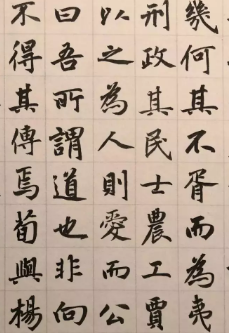 幾何其不胥而為夷
刑政其民士農工賈
以之為人則愛而公
曰吾所謂道也非向
不得其傳焉荀與楊